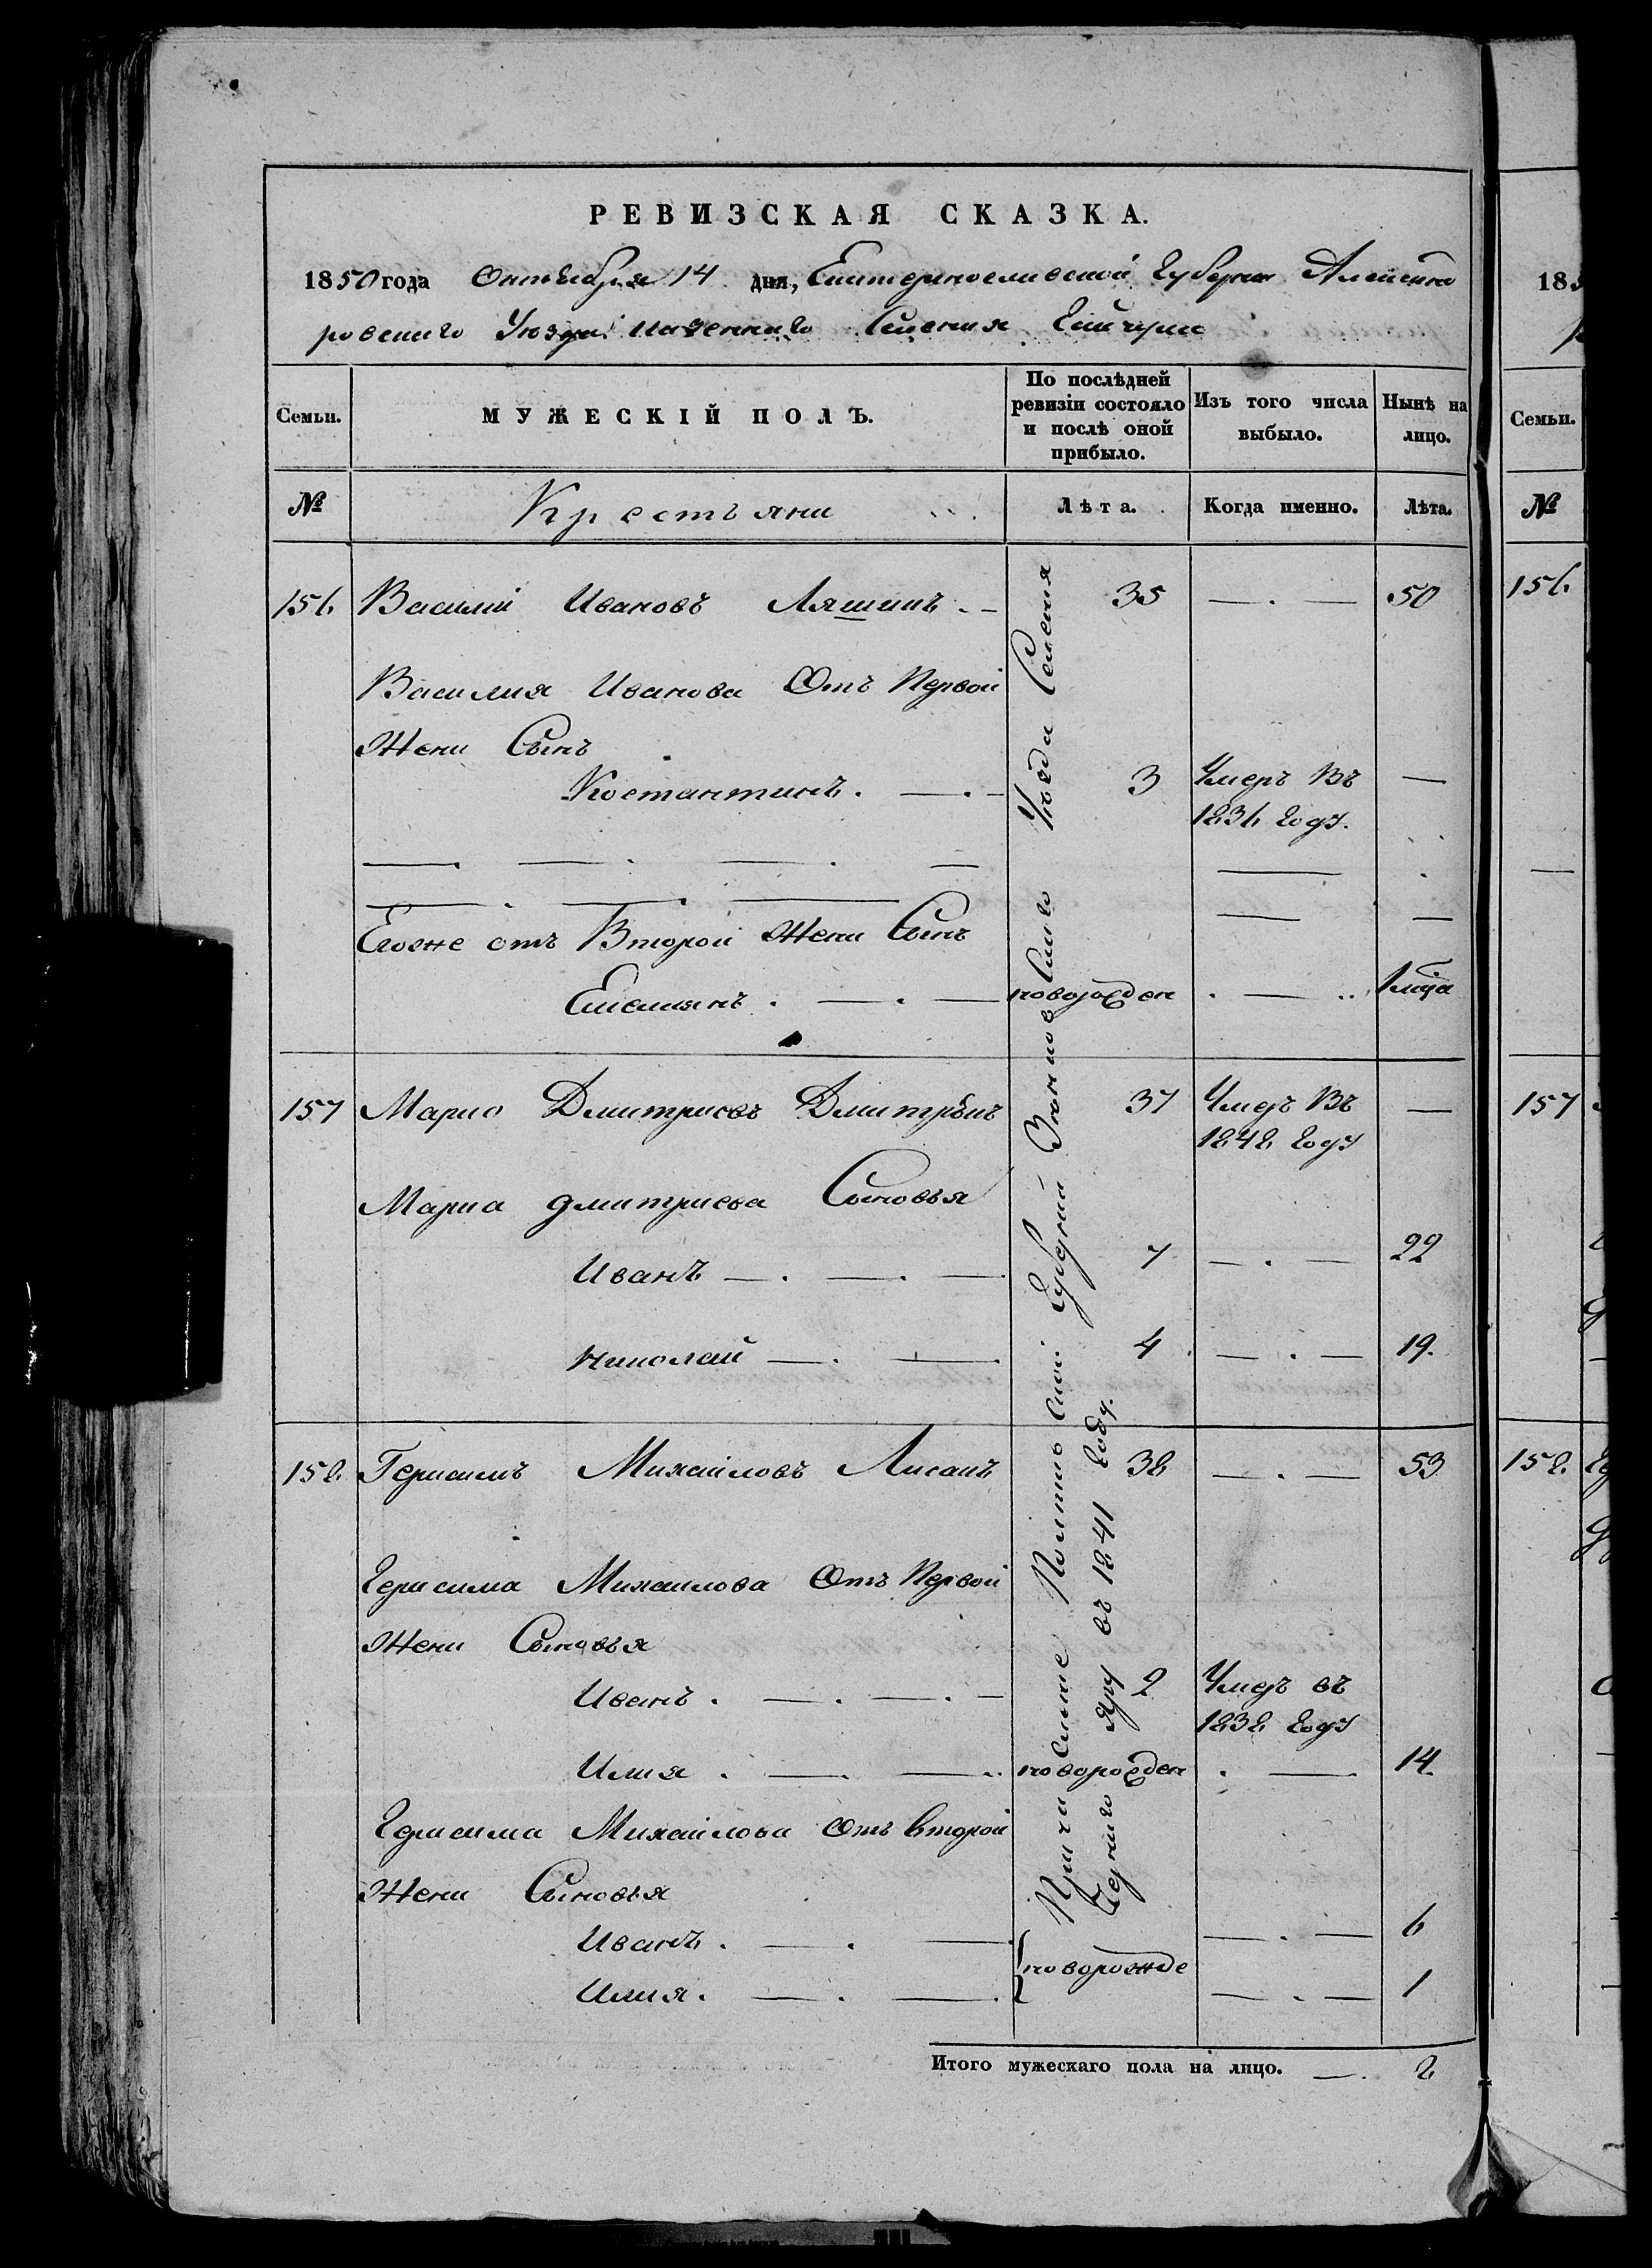 РЕВИЗСКАЯ СКАЗКА.
1850 года Октября 14 дня, Екатеринославской Губернии Александ
ровскаго Уезда казеннаго Селения Гайчула
Семьи.
МУЖЕСКІЙ ПОЛЪ.
По послѣдней ревизіи состояло и послѣ оной прибыло.
Изъ того числа выбыло.
Нынѣ на лицо.
№
Крестьяни
Лѣта.
Когда именно.
Лѣта.
156 Василій Ивановъ Ляшикъ 35 50
Василия Иванова Отъ Первой
Жени Сынъ
Костантинъ. 3 Умеръ Въ
1836 году.
Егоже отъ Второй Жени Сынъ
Емелиянъ. новорожден 1 мца
157 Марко Дмитриевъ 37 Умеръ Въ
1848 году
Марка Дмитриева Сыновья
Иванъ 7 22
Николай 4 19.
158 Герасимъ Михайловъ Лисакъ 38 53
Герасима Михайлова Отъ Первой
Жени Сыновья
Иванъ. 2 Умеръ въ
1838 году
Илия. новорожден 14.
Герасима Михайлова отъ второй
Жени Сыновья
Иванъ. 6
новорожде
Илия. 1
Причисление Полтавской Губернии Зеньковскаго Уезда Селения
яру въ 1841 году.
Итого мужескаго пола на лицо. 8
185
Семьи.
№
156
157
158